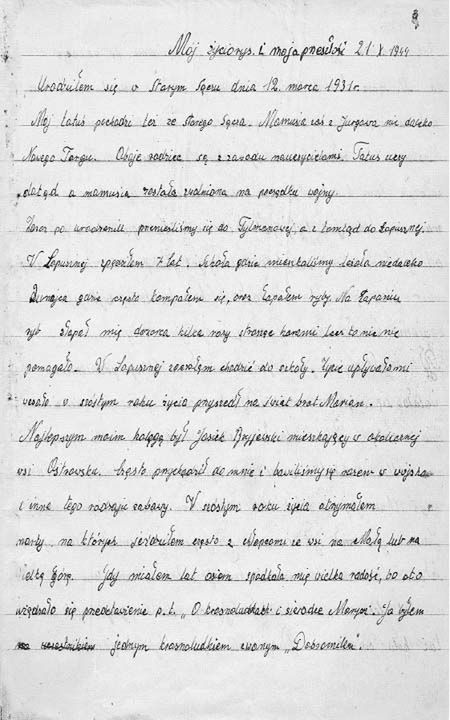 Mój życiorys i moja przeszłość 21 X 1944
Urodziłem się w Starym Sączu dnia 12. marca 1931r.
Mój tatuś pochodzi też ze starego Sącza. Mamusia zaś z Jurgowa nie daleko
Nowego Targu. Oboje rodzice są z zawodu nauczycielami. Tatuś uczy
dotąd a mamusia została zwolniona na początku wojny.
Zaraz po urodzeniu przenieśliśmy się do Tylmanowej, a z tamtąd do Łopusznej.
W Łopusznej spędziłem 7 lat. Szkoła gdzie mieszkaliśmy leżała niedaleko
Dunajca gdzie często kompałem się, oraz łapałem ryby. Na łapaniu
ryb złapał mię dozorca kilka razy strasząc karami lecz to nic nie
pomagało. W Łopusznej zacząłem chodzić do szkoły. Życie upływało mi
wesoło w szóstym roku życia przyszedł na świat brat Marian.
Najlepszym moim kolegą był Jasiek mieszkający w okolicznej
wsi Ostrowsku. Często przychodził do mnie i bawiliśmy się razem w wojsko
i inne tego rodzaju zabawy. W szóstym roku życia otrzymałem
narty, na których jeździłem często z chłopcami ze wsi na Małą lub na
Wielką Górę. Gdy miałem lat osiem spotkała mię wielka radość, bo oto
odbyło się przedstawienie p.t. „O krasnoludkach i sierotce Marysi". Ja byłem
jednym krasnoludkiem zwanym „Dobromiłem".